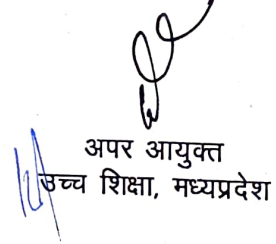 अपर आयुक्त
उच्च शिक्षा, मध्यप्रदेश